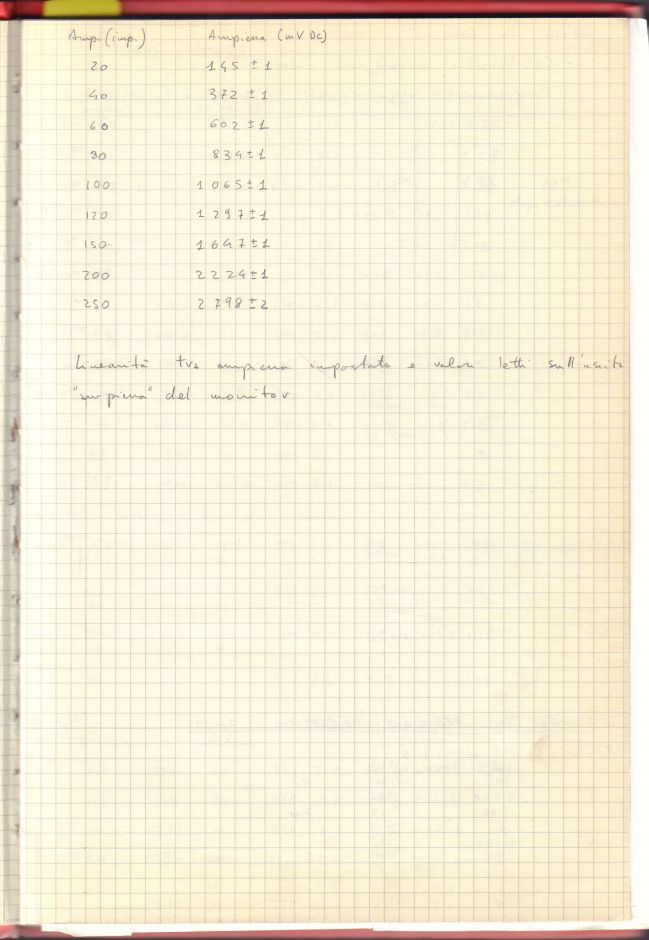 Amp. (imp.) Ampiezza (mV DC)
20 145 ± 1
40 372 ± 1
60 602 ± 1
80 834 ± 1
100 1065 ± 1
120 1297 ± 1
150 1647 ± 1
200 2224 ± 1
250 2798 ± 2
Linearità tra ampiezza impostata e valori letti sull'uscita
"ampiezza" del monitor